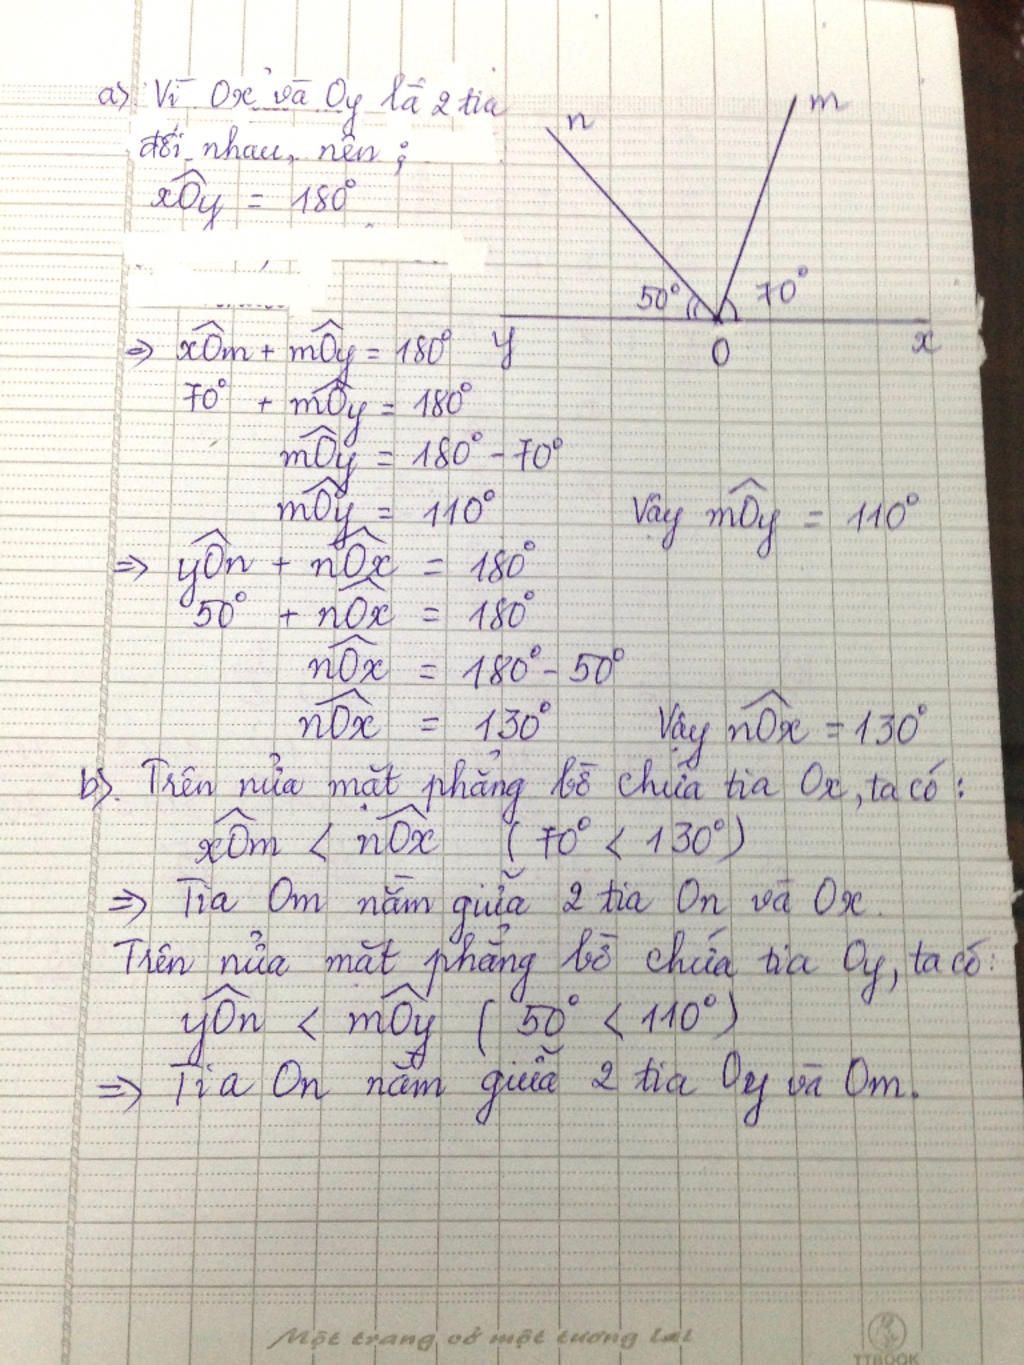 a) Vì Ox và Oy là 2 tia
đối nhau, nên ;
xOy = 180°
n
m
50°
70°
y
O
x
=> xOm + mOy = 180°
70° + mOy = 180°
mOy = 180° - 70°
mOy = 110° Vậy mOy = 110°
=> yOn + nOx = 180°
50° + nOx = 180°
nOx = 180° - 50°
nOx = 130° Vậy nOx = 130°
b). Trên nửa mặt phẳng bờ chứa tia Ox, ta có:
xOm < nOx (70° < 130°)
=> Tia Om nằm giữa 2 tia On và Ox.
Trên nửa mặt phẳng bờ chứa tia Oy, ta có:
yOn < mOy (50° < 110°)
=> Tia On nằm giữa 2 tia Oy và Om.
Một trang vở một tương lai
TTBOOK